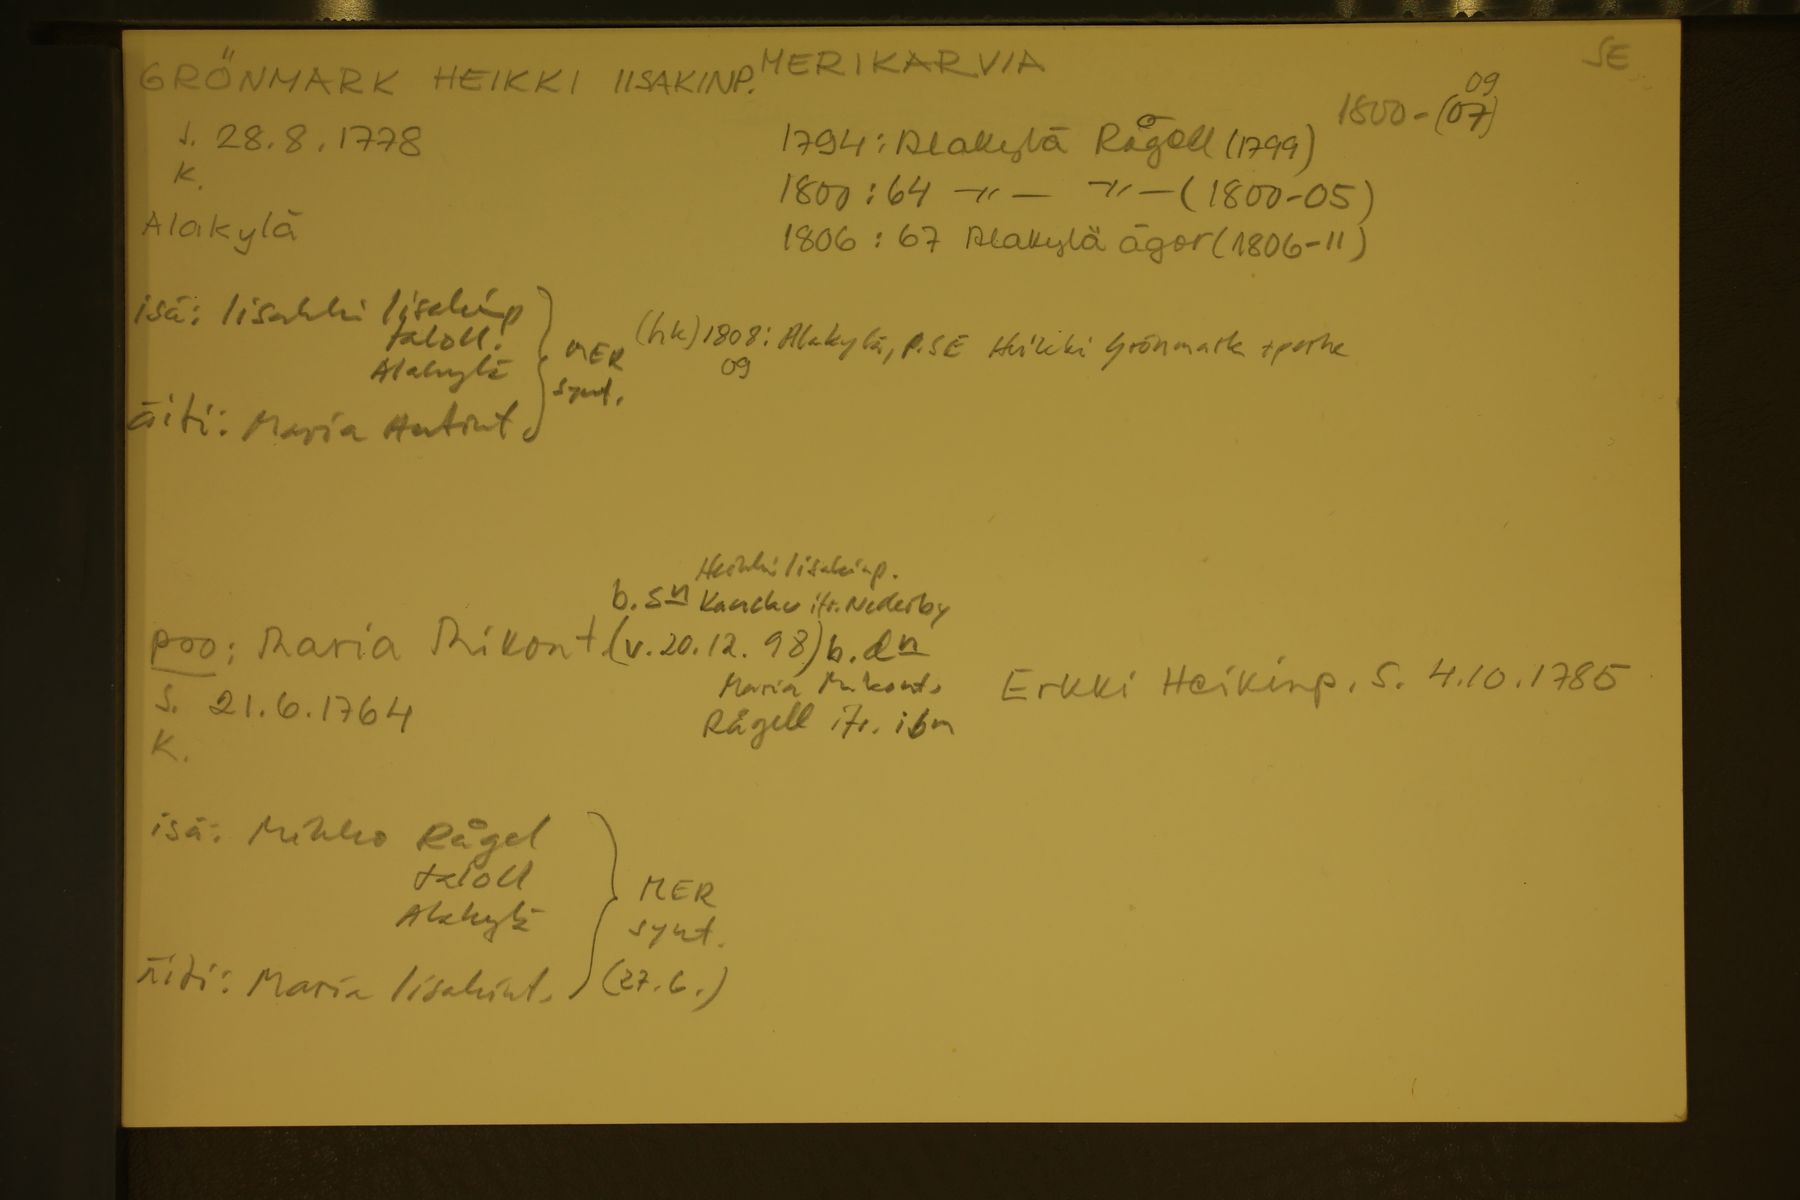 GRÖNMARK HEIKKI IISAKINP. MERIKARVIA SE
s. 28.8.1778
k.
Alakylä
1800-(07)
09
1794: Alakylä Rågell (1799)
1800: 64 -"- -"- (1800-05)
1806: 67 Alakylä ägor (1806-11)
isä: Iisakki Iisakinp
taloll.
Alakylä
äiti: Maria Antint.
MER
synt.
(hk) 1808: Alakylä, P.SE Heikki Grönmark + perhe
09
puo: Maria Mikont. (v. 20.12.98)
s. 21.6.1764
k.
b. sn Heikki Iisakinp.
ifr. Nederby
b. dn
Maria Mikont.
Rågell ifr. ibm
Erkki Heikinp. s. 4.10.1785
isä: Mikko Rågel
taloll
Alakylä
äiti: Maria Iisakint.
MER
synt.
(27.6.)